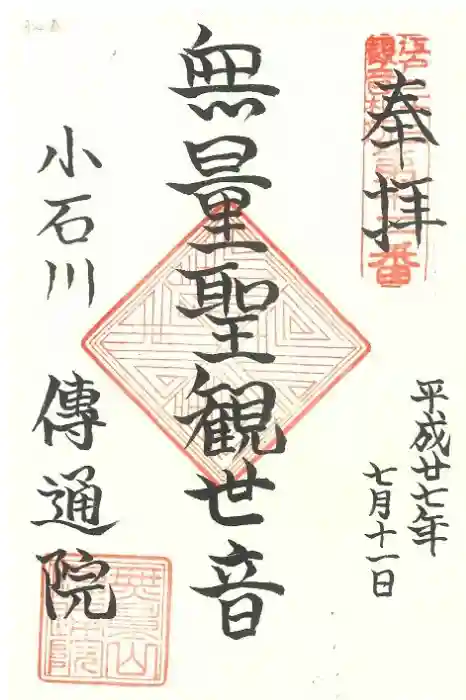 奉拝
平成廿七年
七月十一日
無量聖観世音
小石川 傳通院